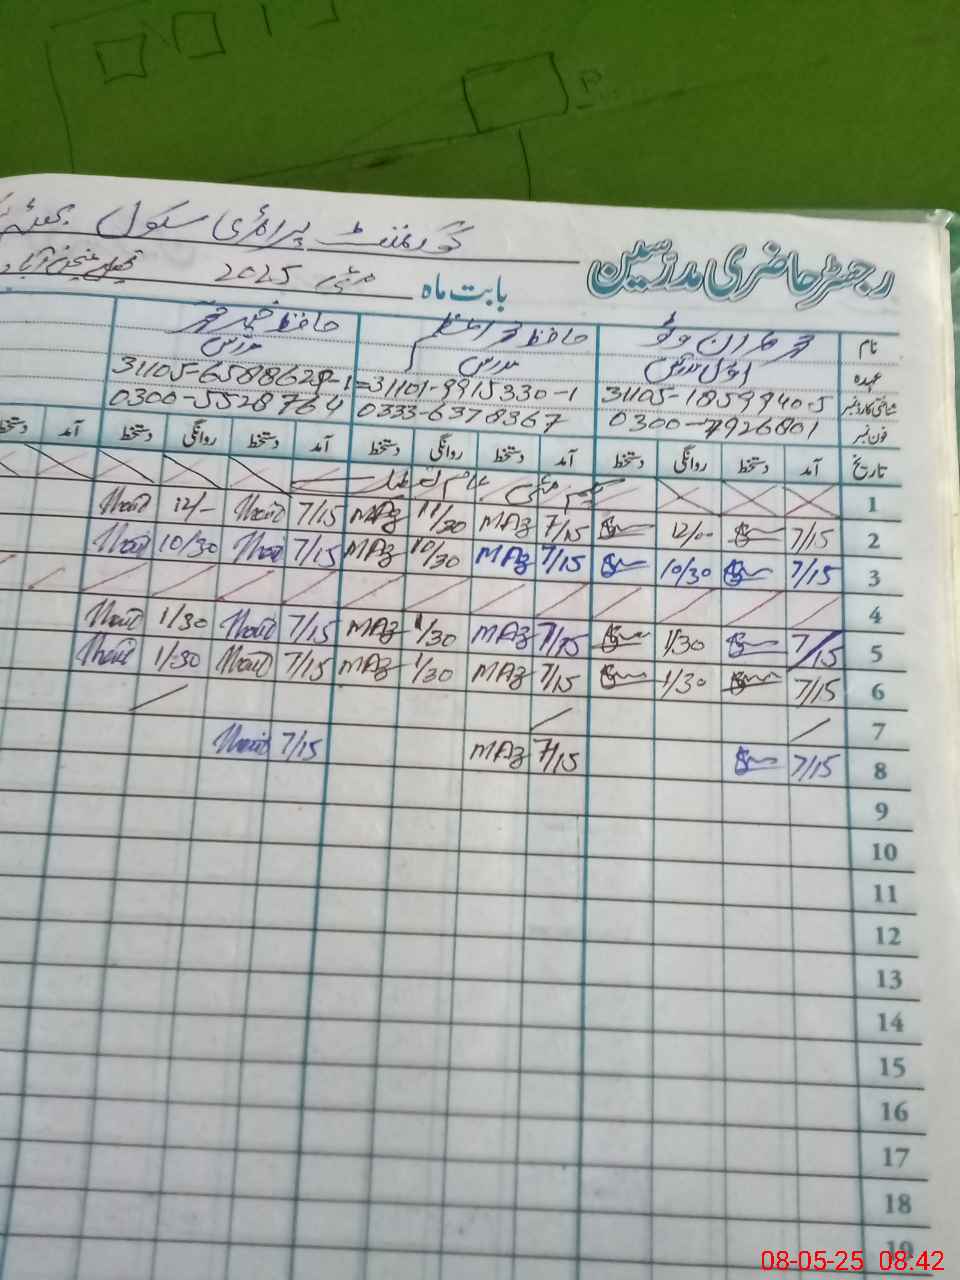 گورنمنٹ پرائمری سکول
رجسٹر حاضری مدرسین
بابت ماہ مئی 2025
نام حافظ محمد
عہدہ مدرس مدرس
شناختی کارڈ نمبر 31105-1859940-5 31101-9915330-1 31105-6588628-1
فون نمبر 0300-7926801 0333-6378367 0300-5528764
تاریخ آمد دستخط روانگی دستخط آمد دستخط روانگی دستخط آمد دستخط روانگی دستخط آمد
1 یکم مئی عام تعطیل
2 7/15 12/- 7/15 MAz 11/30 MAz 7/15 12/-
3 7/15 10/30 7/15 MAz 10/30 MAz 7/15 10/30
4
5 7/15 1/30 7/15 MAz 1/30 MAz 7/15 1/30
6 7/15 1/30 7/15 MAz 1/30 MAz 7/15 1/30
7
8 7/15 7/15 MAz 7/15
9
10
11
12
13
14
15
16
17
18
19
08-05-25 08:42